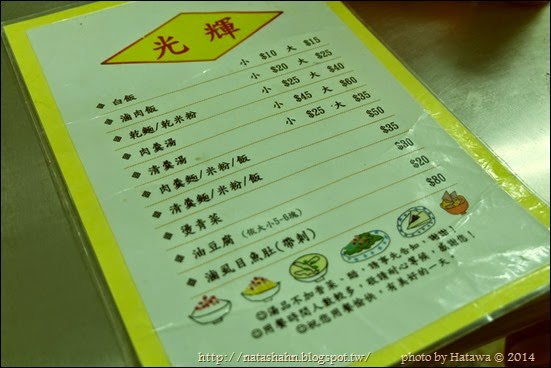 光輝
◆ 白飯 小 $10 大 $15
◆ 滷肉飯 小 $20 大 $25
◆ 乾麵/乾米粉 小 $25 大 $40
◆ 肉羹湯 小 $45 大 $60
◆ 清羹湯 小 $25 大 $35
◆ 肉羹麵/米粉/飯 $50
◆ 清羹麵/米粉/飯 $35
◆ 燙青菜 $30
◆ 油豆腐 (依大小5-6塊) $20
◆ 滷虱目魚肚(帶刺) $80
◎湯品不加韭菜、醋,請事先告知,謝謝!
◎用餐時間人數較多,敬請耐心等候,感謝您!
◎祝您用餐愉快,有美好的一天。
http://natashahn.blogspot.tw/
photo by Hatawa © 2014